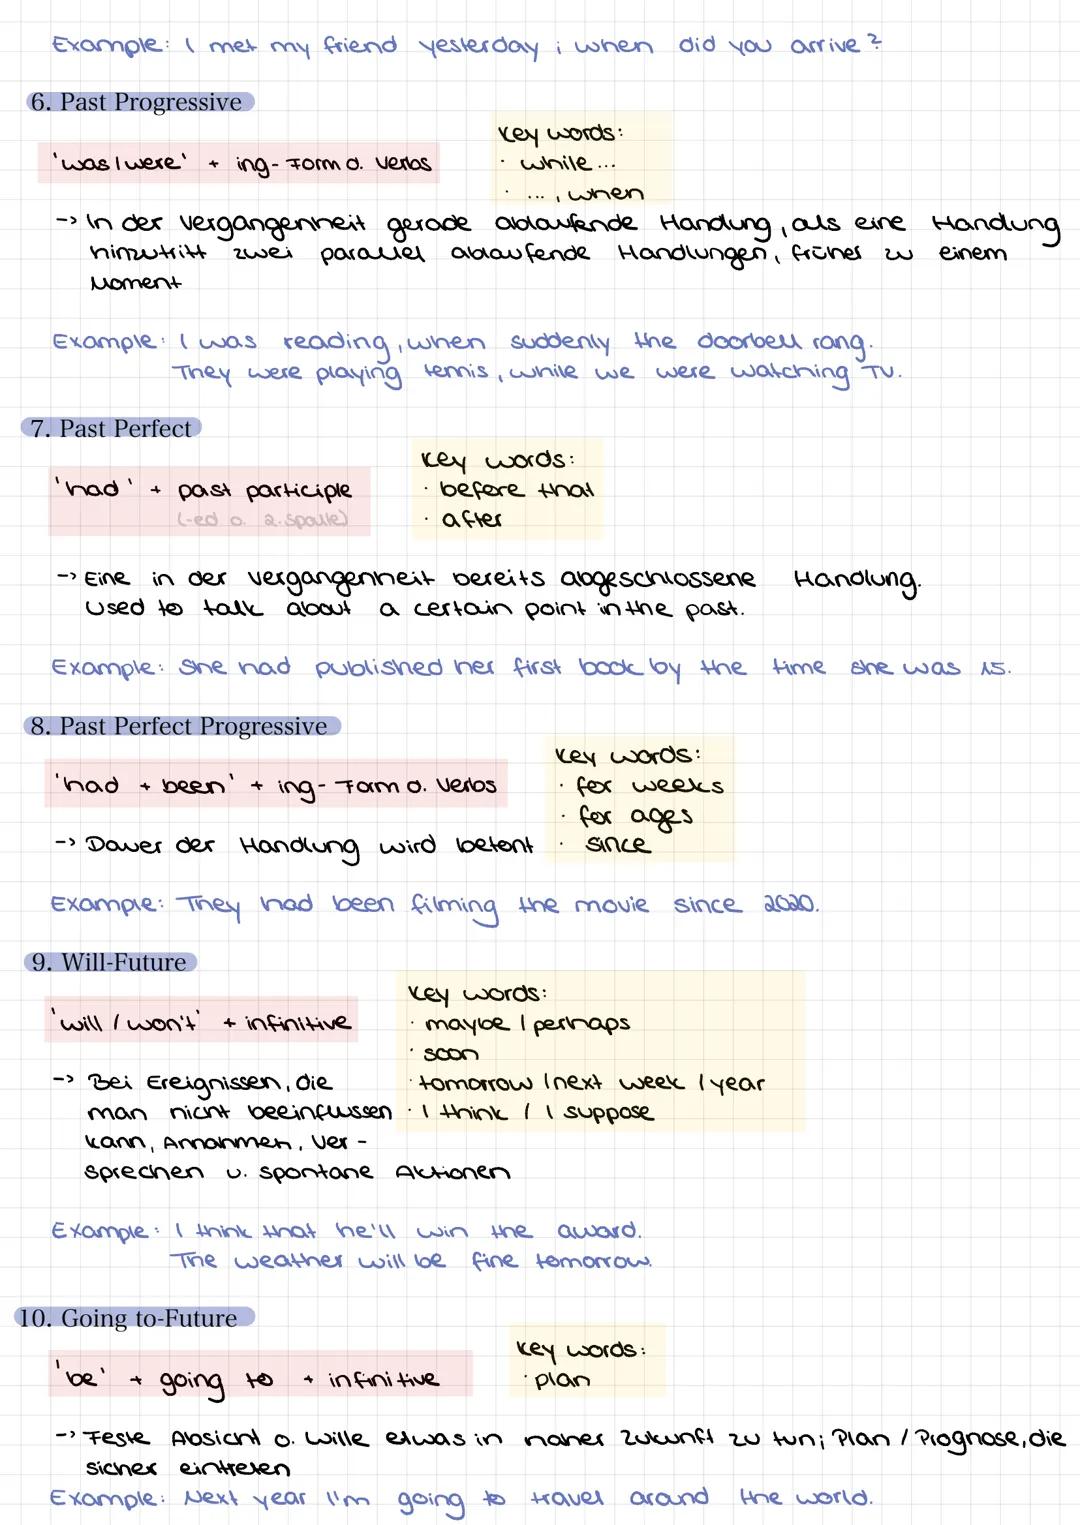 Example: I met my friend yesterday ; when did you arrive?
6. Past Progressive
'was/were' + ing-Form d. Verbs
Key words:
· while...
· ..., when
-> In der Vergangenheit gerade ablaufende Handlung, als eine Handlung
hinzutritt zwei parallel ablaufende Handlungen, früher zu einem
Moment
Example: I was reading, when suddenly the doorbell rang.
They were playing tennis, while we were watching TV.
7. Past Perfect
'had' + past participle
(-ed o. 2. Spalte)
Key words:
· before that
· after
-> Eine in der Vergangenheit bereits abgeschlossene Handlung.
Used to talk about a certain point in the past.
Example: She had published her first book by the time she was 15.
8. Past Perfect Progressive
'had + been' + ing-Form d. Verbs
Key words:
· for weeks
· for ages
· since
-> Dauer der Handlung wird betont
Example: They had been filming the movie since 2020.
9. Will-Future
'will / won't' + infinitive
Key words:
· maybe / perhaps
· soon
· tomorrow / next week / year
· I think / I suppose
-> Bei Ereignissen, die
man nicht beeinflussen
kann, Annahmen, Ver-
sprechen u. spontane Aktionen
Example: I think that he'll win the award.
The weather will be fine tomorrow.
10. Going to-Future
'be' + going to + infinitive
Key words:
· plan
-> Feste Absicht o. Wille etwas in naher Zukunft zu tun; Plan / Prognose, die
sicher eintreten
Example: Next year I'm going to travel around the world.